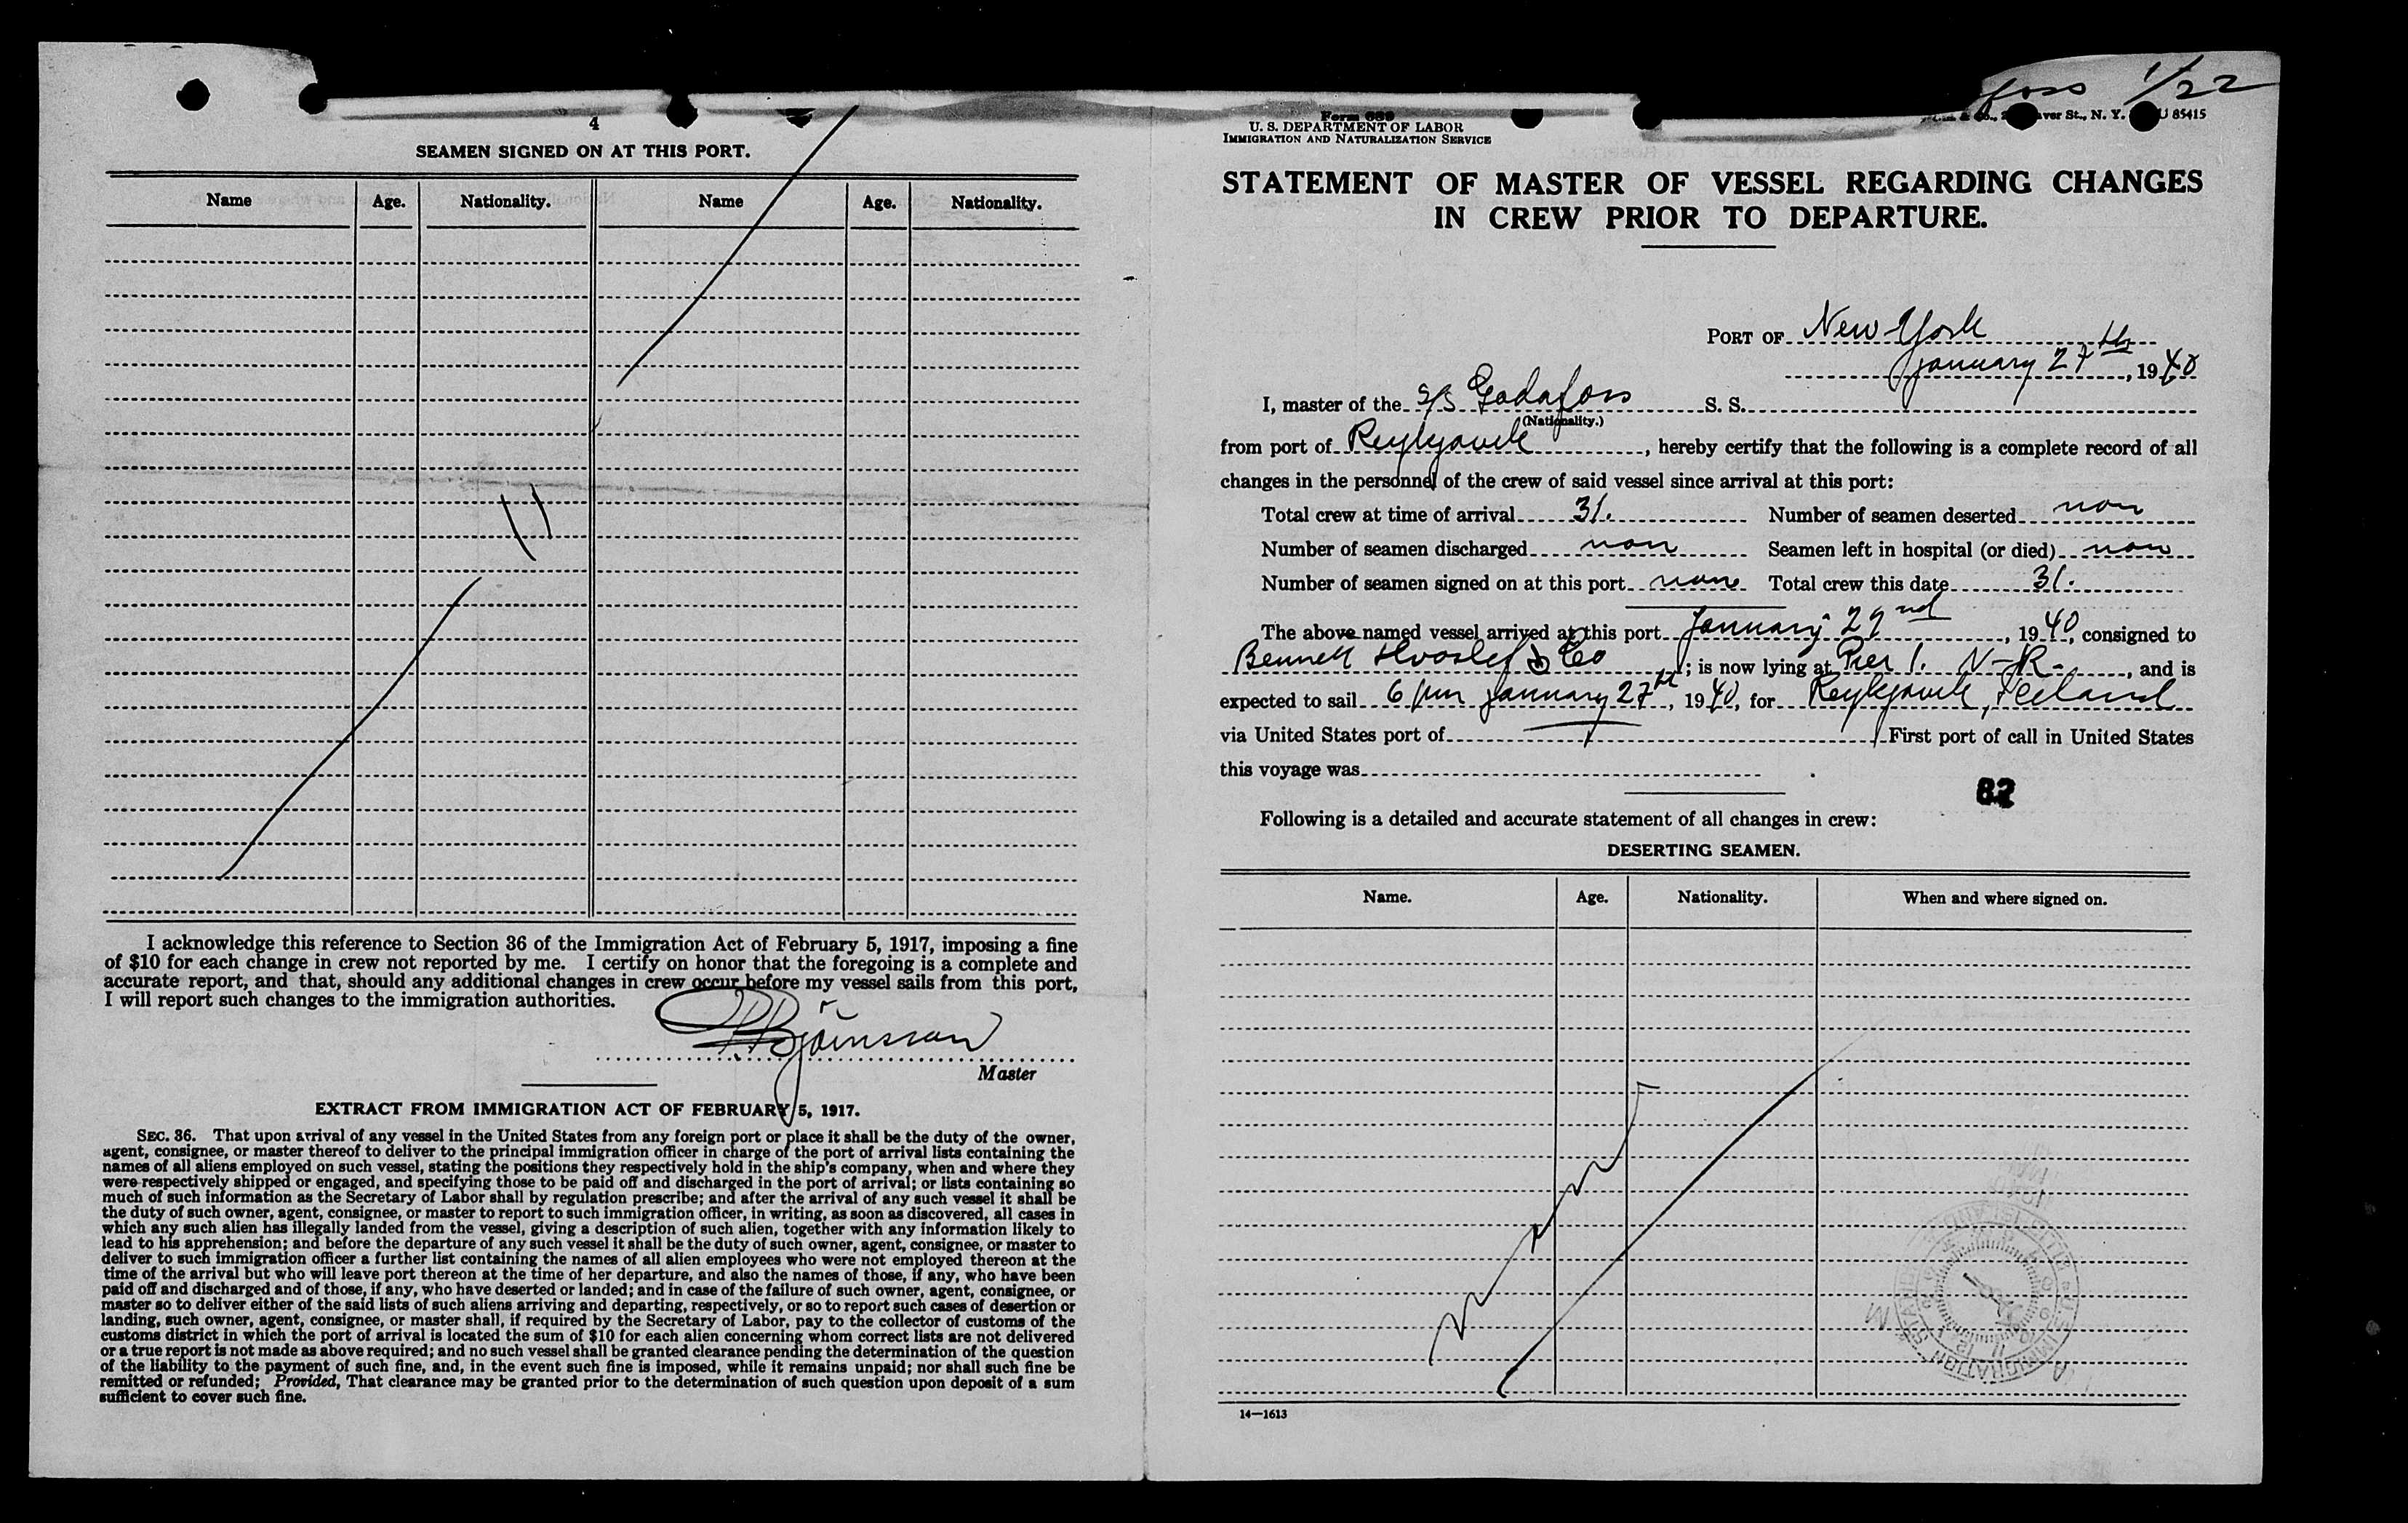 4
SEAMEN SIGNED ON AT THIS PORT.
Name Age. Nationality. Name Age. Nationality.
I acknowledge this reference to Section 36 of the Immigration Act of February 5, 1917, imposing a fine
of $10 for each change in crew not reported by me. I certify on honor that the foregoing is a complete and
accurate report, and that, should any additional changes in crew occur before my vessel sails from this port,
I will report such changes to the immigration authorities.
Björnsson
Master
EXTRACT FROM IMMIGRATION ACT OF FEBRUARY 5, 1917.
SEC. 36. That upon arrival of any vessel in the United States from any foreign port or place it shall be the duty of the owner,
agent, consignee, or master thereof to deliver to the principal immigration officer in charge of the port of arrival lists containing the
names of all aliens employed on such vessel, stating the positions they respectively hold in the ship's company, when and where they
were respectively shipped or engaged, and specifying those to be paid off and discharged in the port of arrival; or lists containing so
much of such information as the Secretary of Labor shall by regulation prescribe; and after the arrival of any such vessel it shall be
the duty of such owner, agent, consignee, or master to report to such immigration officer, in writing, as soon as discovered, all cases in
which any such alien has illegally landed from the vessel, giving a description of such alien, together with any information likely to
lead to his apprehension; and before the departure of any such vessel it shall be the duty of such owner, agent, consignee, or master to
deliver to such immigration officer a further list containing the names of all alien employees who were not employed thereon at the
time of the arrival but who will leave port thereon at the time of her departure, and also the names of those, if any, who have been
paid off and discharged and of those, if any, who have deserted or landed; and in case of the failure of such owner, agent, consignee, or
master so to deliver either of the said lists of such aliens arriving and departing, respectively, or so to report such cases of desertion or
landing, such owner, agent, consignee, or master shall, if required by the Secretary of Labor, pay to the collector of customs of the
customs district in which the port of arrival is located the sum of $10 for each alien concerning whom correct lists are not delivered
or a true report is not made as above required; and no such vessel shall be granted clearance pending the determination of the question
of the liability to the payment of such fine, and, in the event such fine is imposed, while it remains unpaid; nor shall such fine be
remitted or refunded; Provided, That clearance may be granted prior to the determination of such question upon deposit of a sum
sufficient to cover such fine.
foss 1/22
Form 689
St., N. Y. 85415
U. S. DEPARTMENT OF LABOR
IMMIGRATION AND NATURALIZATION SERVICE
STATEMENT OF MASTER OF VESSEL REGARDING CHANGES
IN CREW PRIOR TO DEPARTURE.
PORT OF New York
January 27th, 1940
I, master of the S/S Godafoss S. S.
(Nationality.)
from port of Reykjavik, hereby certify that the following is a complete record of all
changes in the personnel of the crew of said vessel since arrival at this port:
Total crew at time of arrival 31. Number of seamen deserted non
Number of seamen discharged non Seamen left in hospital (or died) non
Number of seamen signed on at this port none Total crew this date 31.
The above named vessel arrived at this port January 22nd, 1940, consigned to
Bennett & Co; is now lying at Pier 1. N-R-, and is
expected to sail 6 pm January 27th, 1940, for Reykjavik, Iceland
via United States port of First port of call in United States
this voyage was
82
Following is a detailed and accurate statement of all changes in crew:
DESERTING SEAMEN.
Name. Age. Nationality. When and where signed on.
14—1613